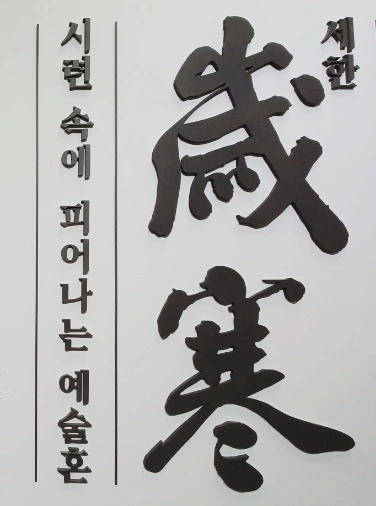 세한
歲寒
시련 속에 피어나는 예술혼